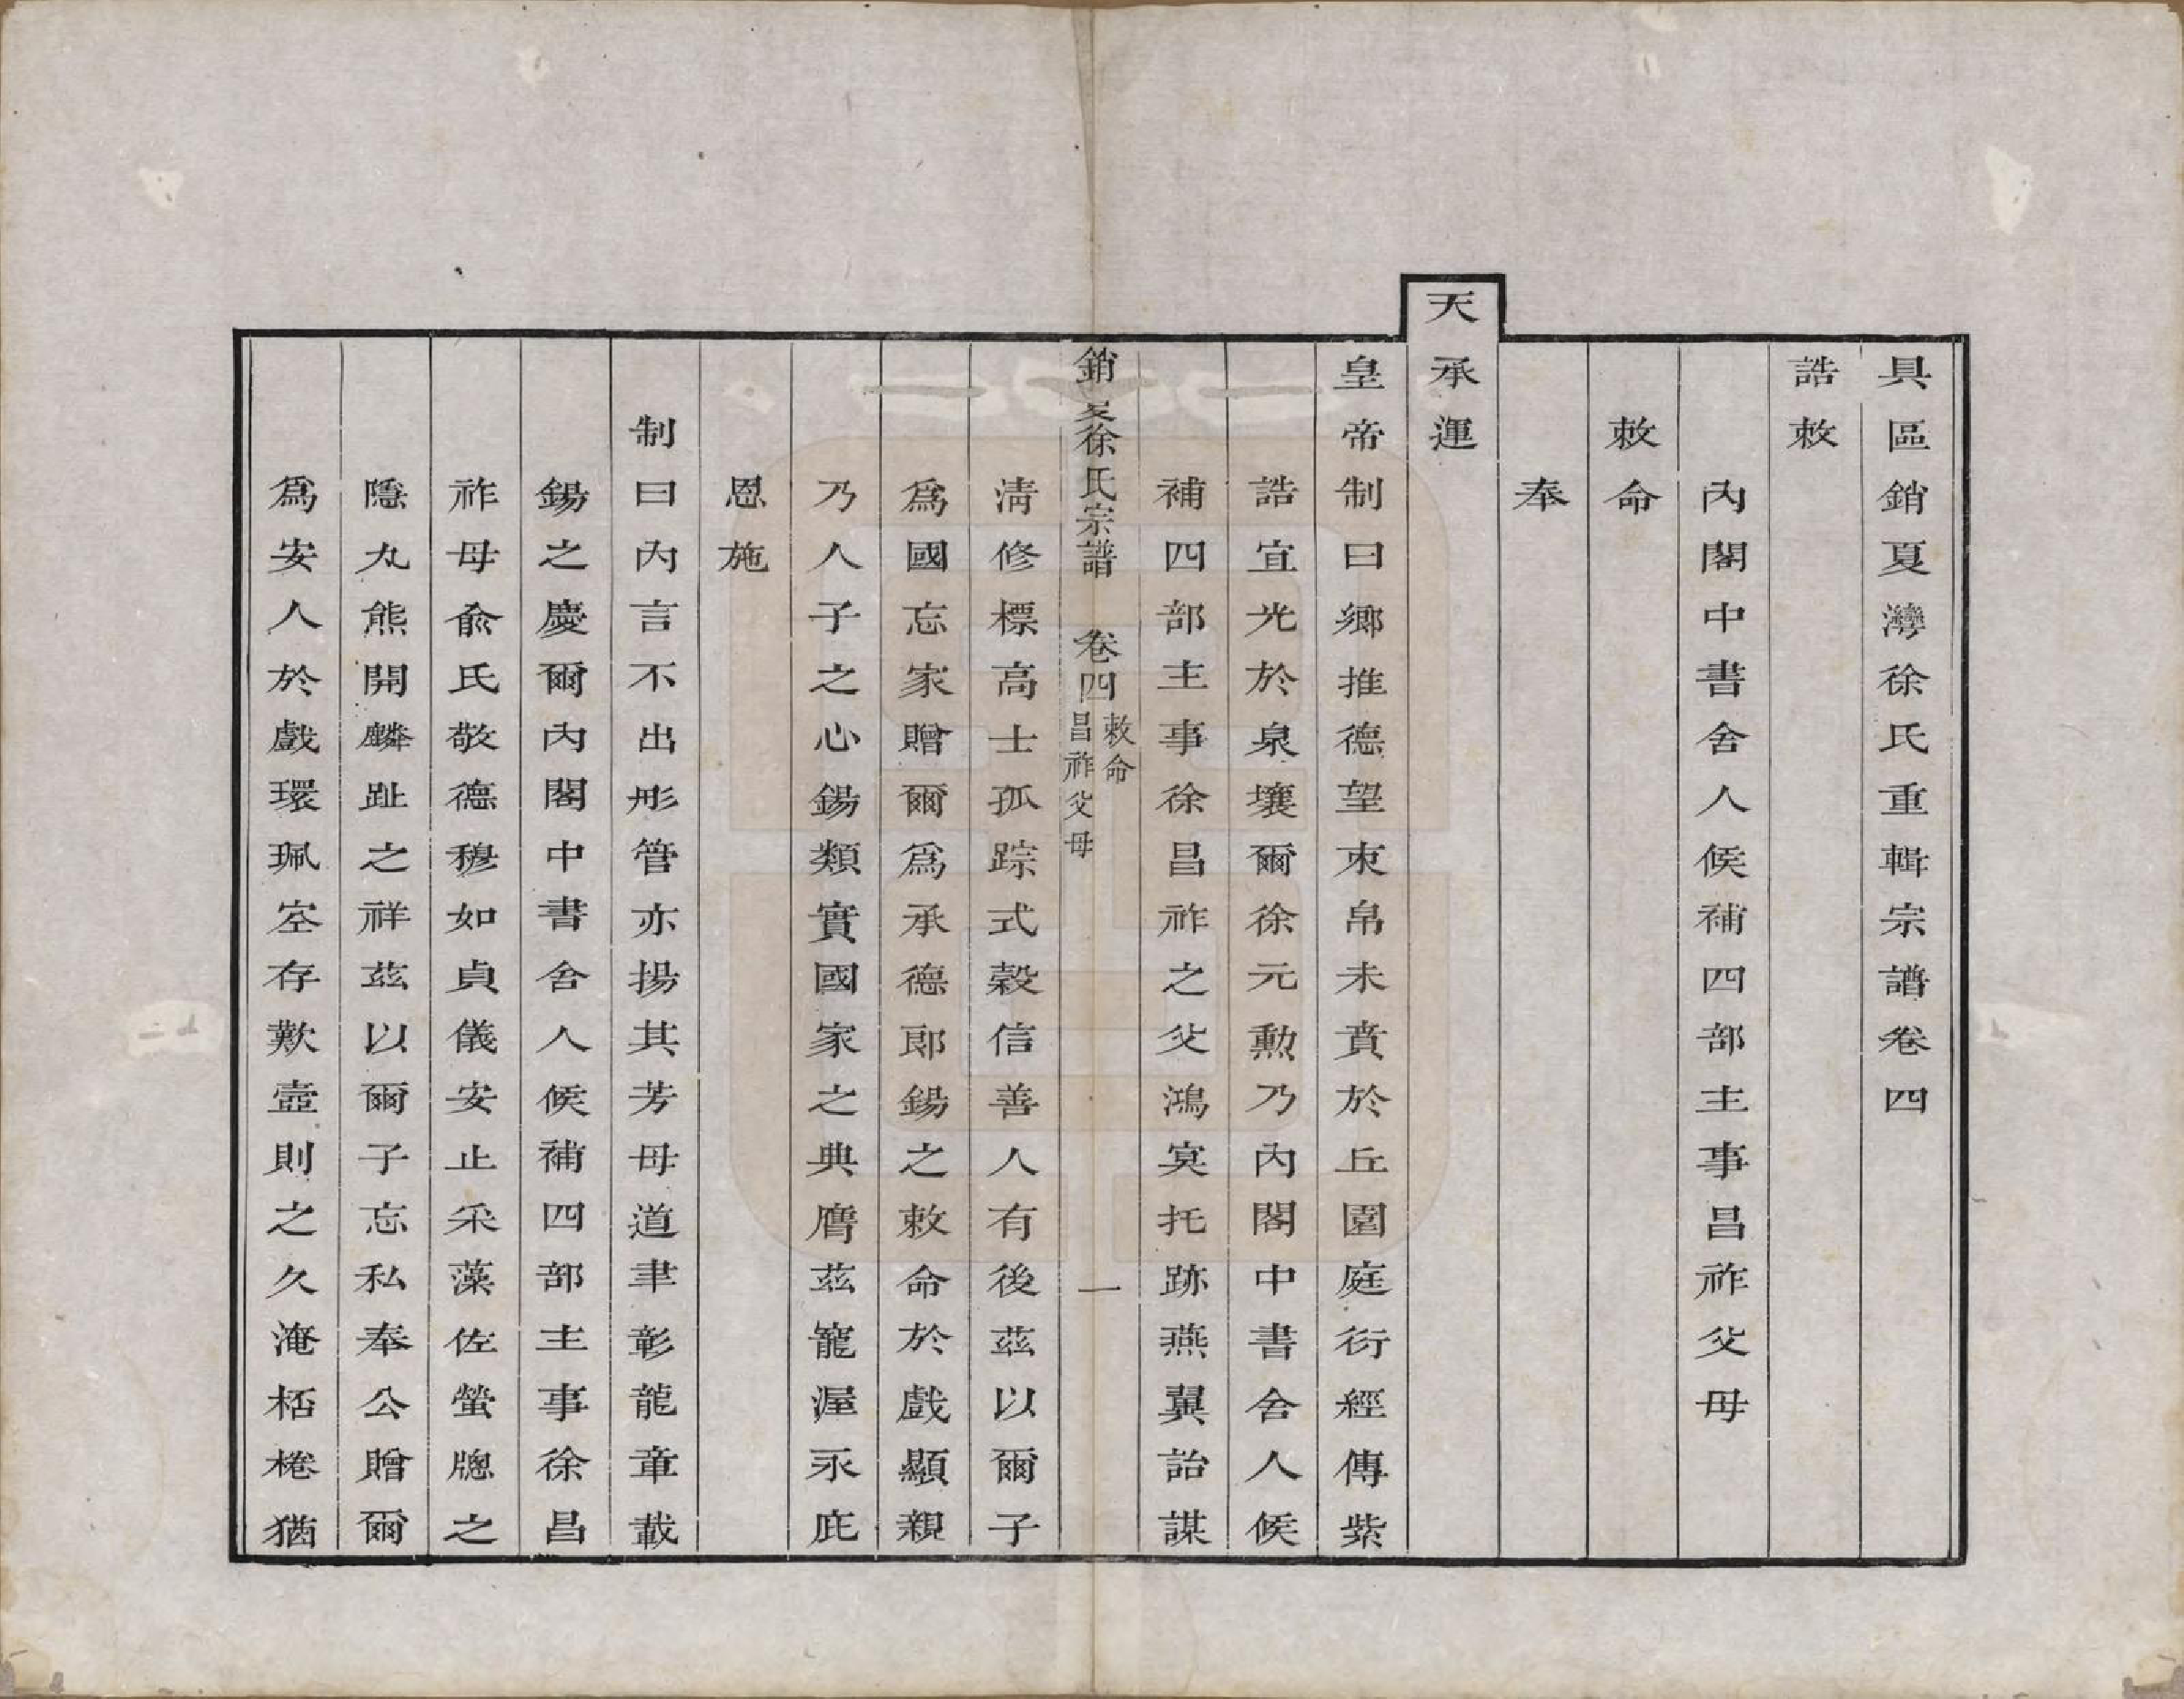 具區銷夏灣徐氏重輯宗譜卷四
誥敕
內閣中書舍人候補四部主事昌祚父母
敕命
奉
天承運
皇帝制曰鄉推德望束帛未賁於丘園庭衍經傳紫
誥宜光於泉壤爾徐元勲乃內閣中書舍人候
補四部主事徐昌祚之父鴻冥托跡燕翼詒謀
銷夏徐氏宗譜 卷四 敕命 昌祚父母 一
淸修標高士孤踪式穀信善人有後茲以爾子
爲國忘家贈爾爲承德郎錫之敕命於戲顯親
乃人子之心錫類實國家之典膺茲寵渥永庇
恩施
制曰內言不出彤管亦揚其芳母道聿彰龍章載
錫之慶爾內閣中書舍人候補四部主事徐昌
祚母俞氏敬德穆如貞儀安止采藻佐螢牕之
隱丸熊開麟趾之祥茲以爾子忘私奉公贈爾
爲安人於戲環珮空存歎壼則之久淹桮棬猶